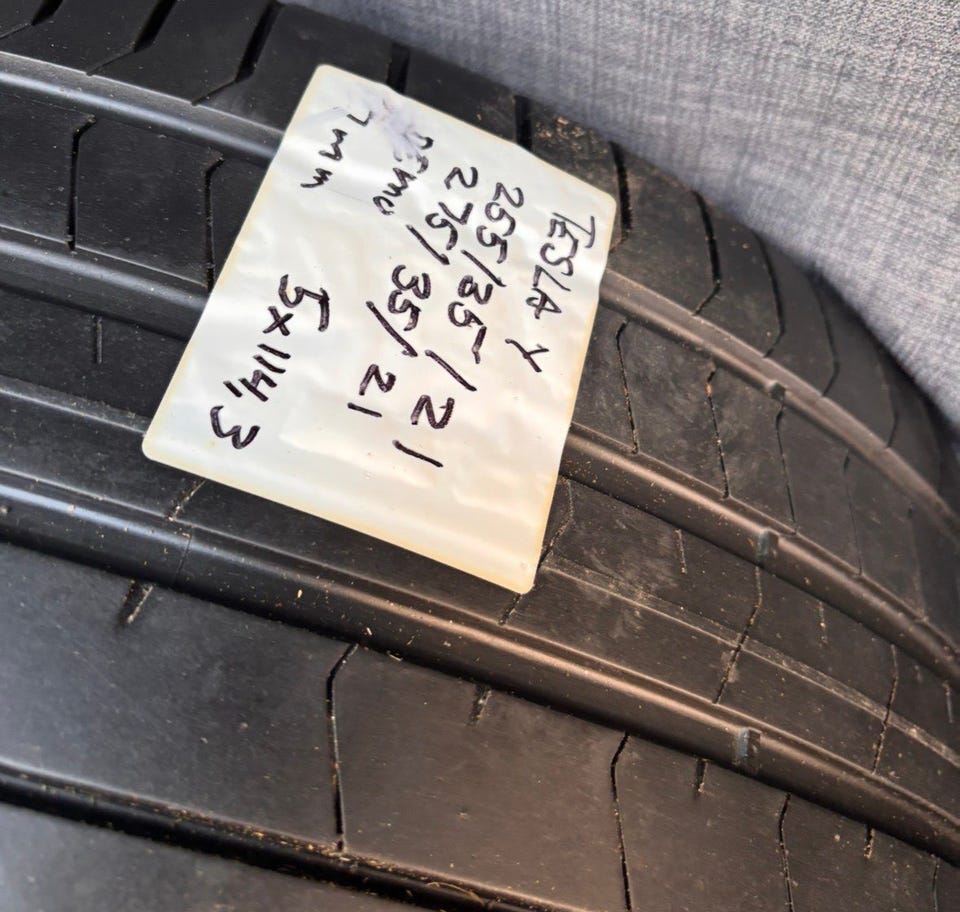 TESLA Y
255/35/21
275/35/21
DEMO
7mm
5x114,3